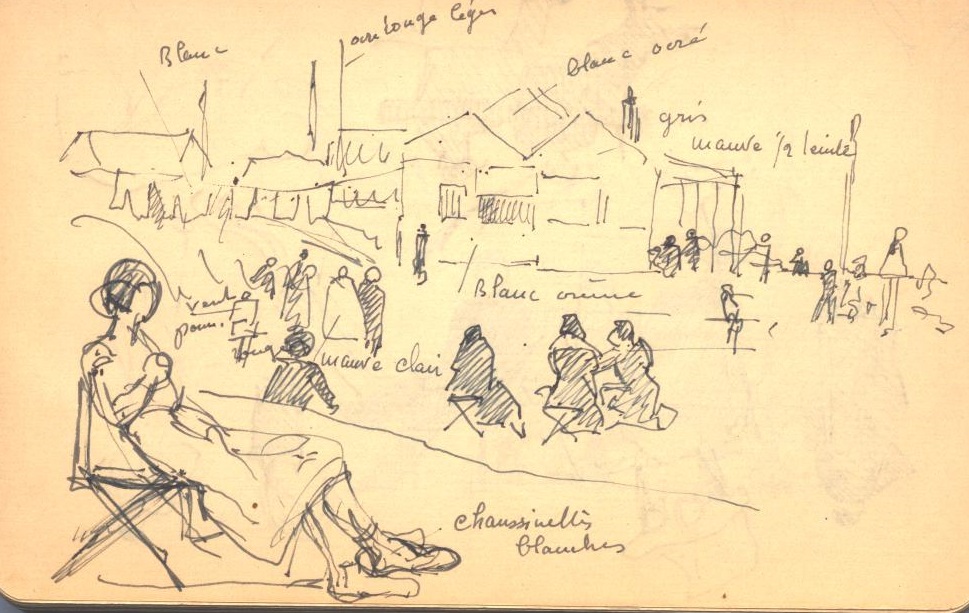 Blanc
ocre rouge léger
blanc ocré
gris
mauve 1/2 teinte
Blanc crème
mauve clair
chaussinettes
blanches